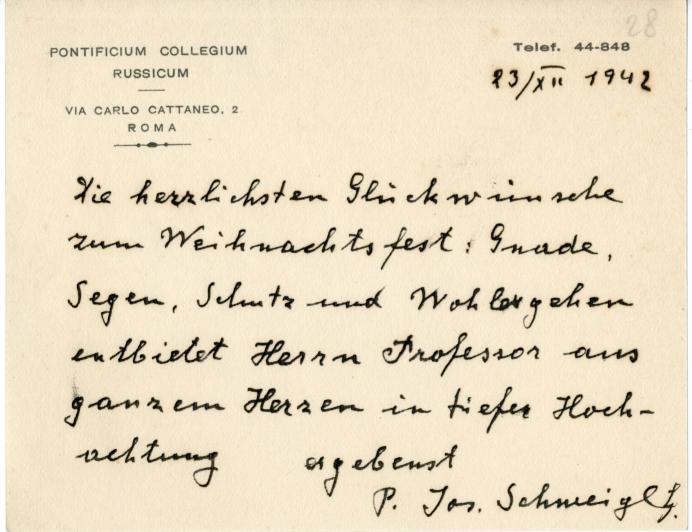 28
PONTIFICIUM COLLEGIUM
RUSSICUM
VIA CARLO CATTANEO, 2
ROMA
Telef. 44-848
23/XII 1942
Die herzlichsten Glückwünsche
zum Weihnachtsfest: Gnade,
Segen, Schutz und Wohlergehen
entbietet Herrn Professor aus
ganzem Herzen in tiefer Hoch-
achtung ergebenst
P. Jos. Schweigl